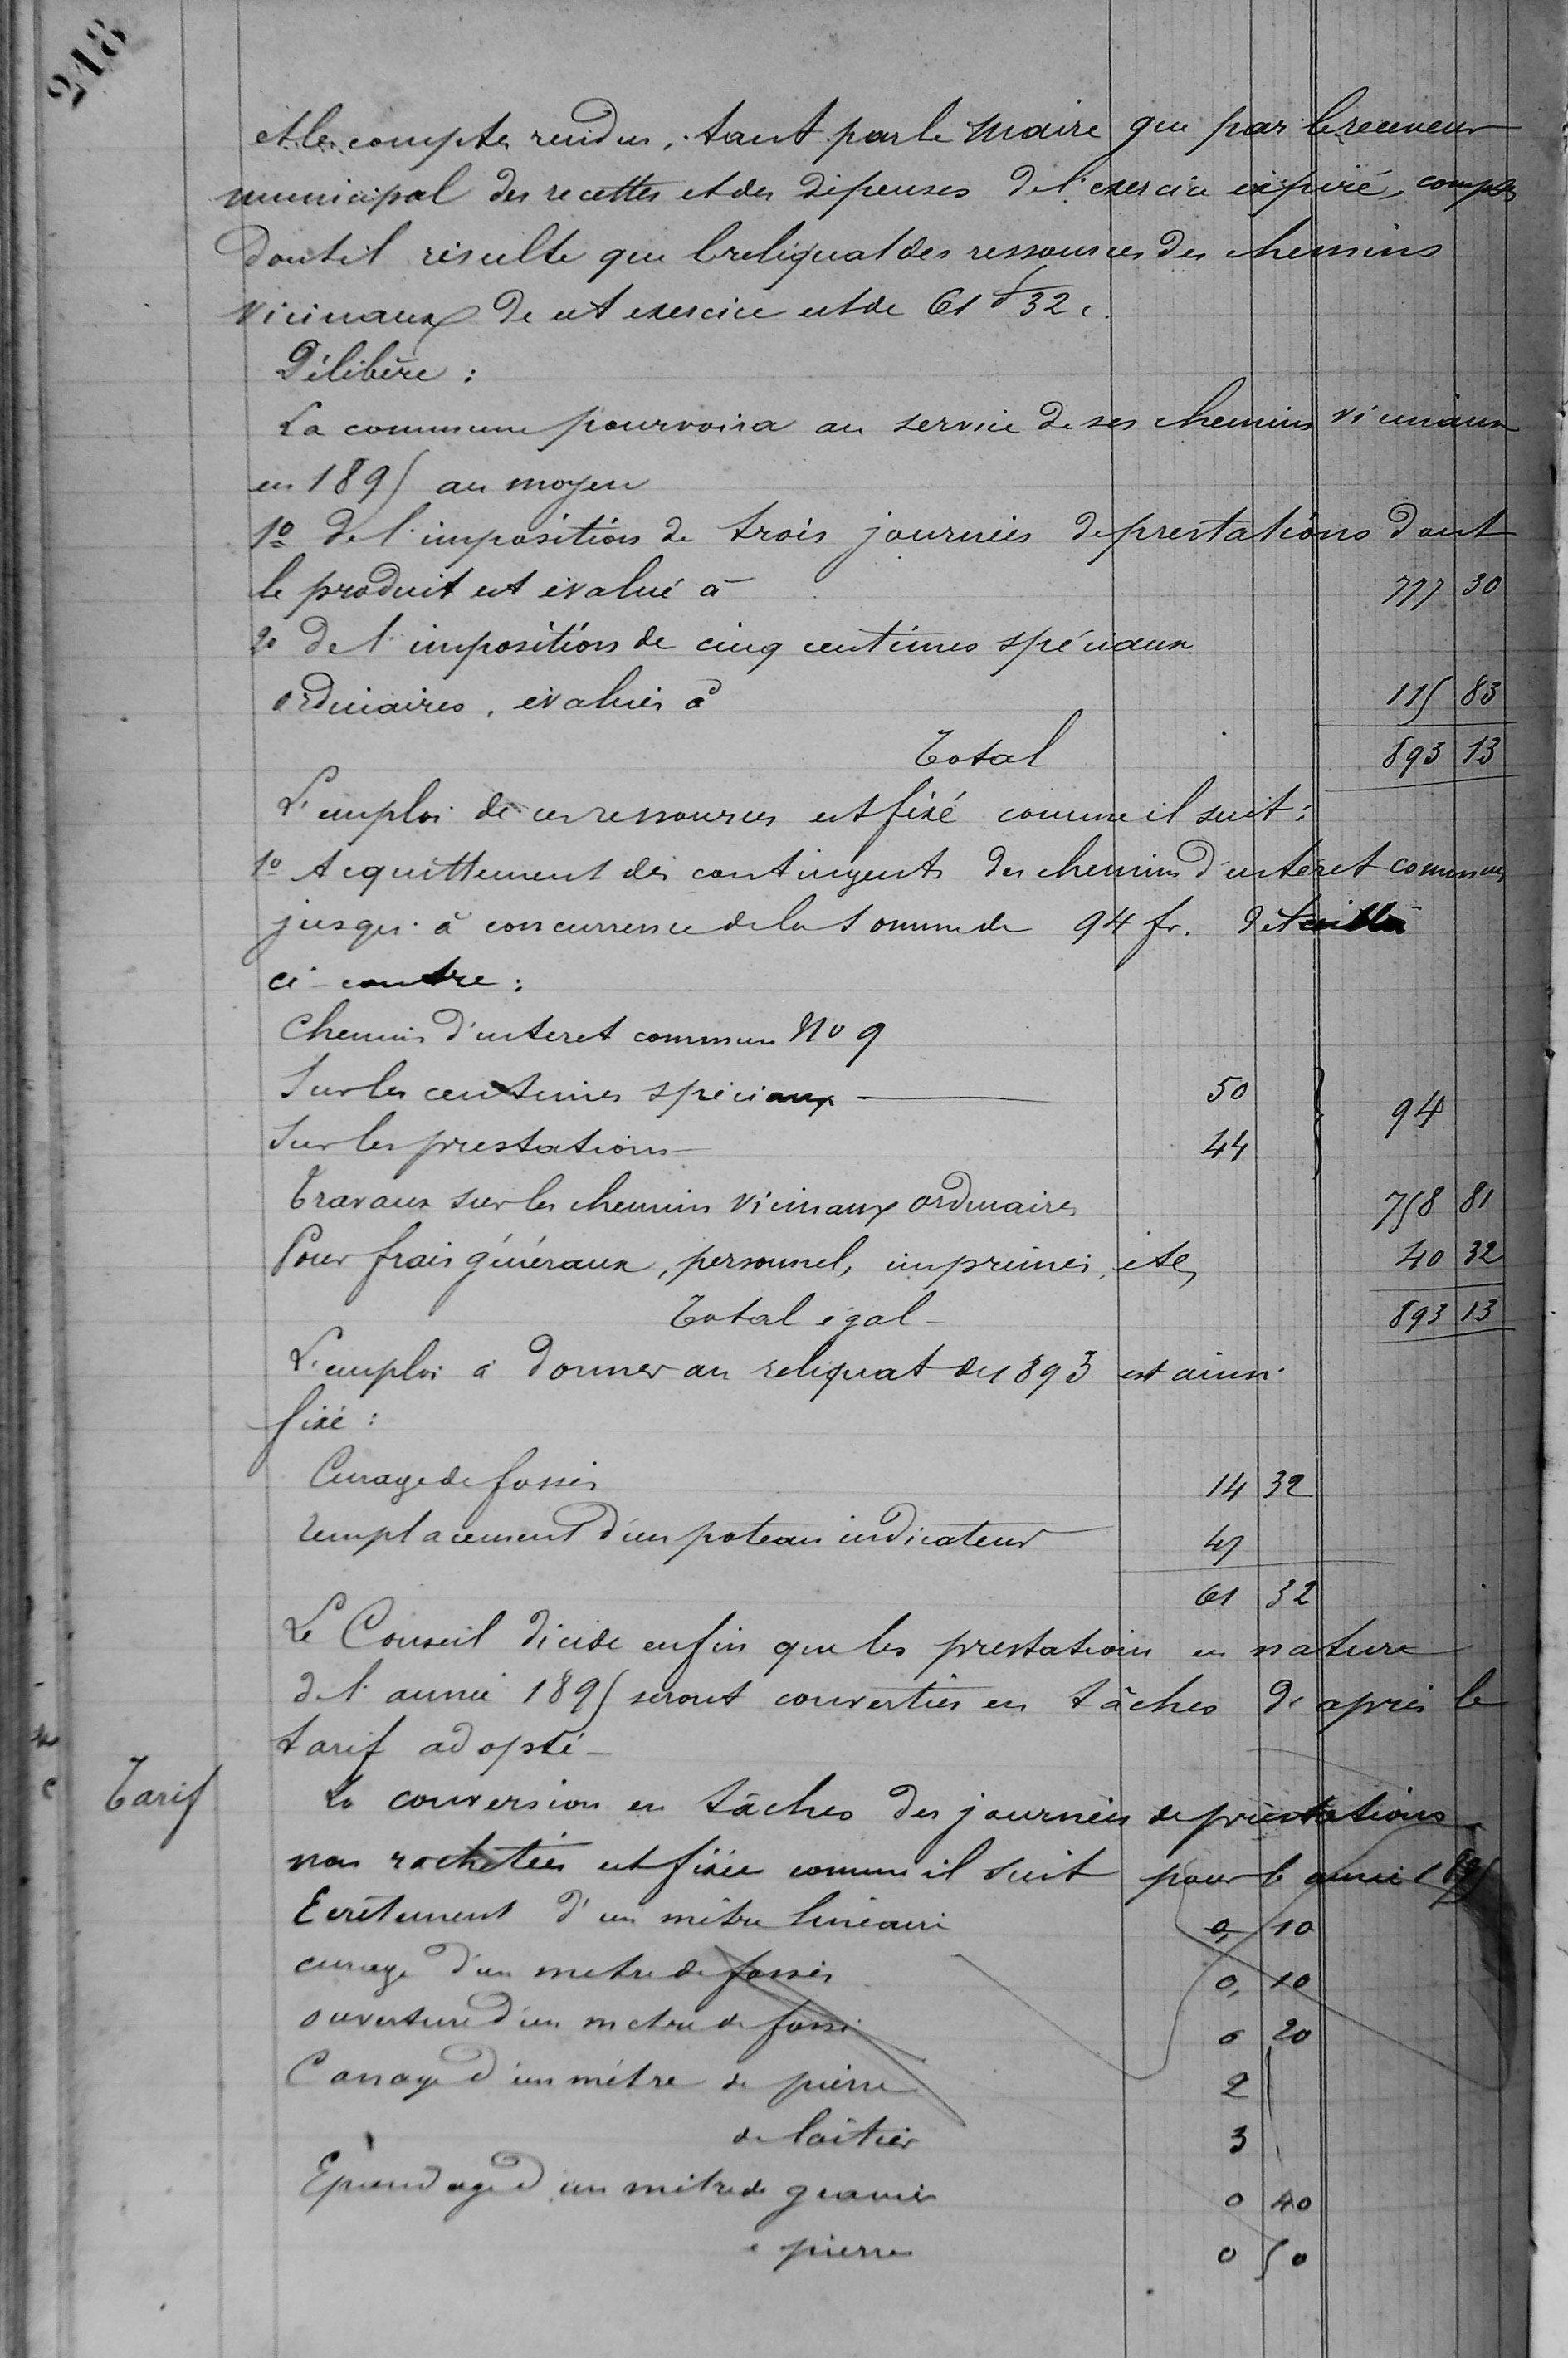 218
et les comptes rendus, tant par le Maire que par le receveur
municipal des recettes et des dépenses de l'exercice expiré, comptes
dont il résulte que le reliquat des ressources des chemins
vicinaux de cet exercice est de 61 f 32 c.
Délibère :
La commune pourvoira au service de ses chemins vicinaux
en 1895 au moyen
1º de l'imposition de trois journées de prestations dont
le produit est évalué à 777 30
2º de l'imposition de cinq centimes spéciaux
ordinaires, évalués à 115 83
Total 893 13
L'emploi de ces ressources est fixé comme il suit :
1º Acquittement des contingents des chemins d'intéret commun
jusqu'à concurrence de la somme de 94 fr. détaillée
ci-contre :
Chemin d'interet commun No 9
Sur les centimes spéciaux 50
94
Sur les prestations 44
Travaux sur les chemins vicinaux ordinaires 758 81
Pour frais généraux, personnel, imprimés, etc, 40 32
Total égal 893 13
L'emploi à donner au reliquat de 1893 est ainsi
fixé :
Curage de fossés 14 32
remplacement d'un poteau indicateur 47
61 32
Le Conseil décide enfin que les prestations en nature
de l'année 1895 seront converties en tâches d'après le
tarif adopté
Tarif
La conversion en tâches des journées de prestations
non rachetées est fixée comme il suit pour l'année 1895
Ecrêtement d'un mètre linéaire 0, 10
curage d'un metre de fossés 0, 10
ouverture d'un metre de fossé 0 20
Cassage d'un mètre de pierre 2
de laitier 3
Epandage d'un mètre de gravier 0 40
" pierre 0 50